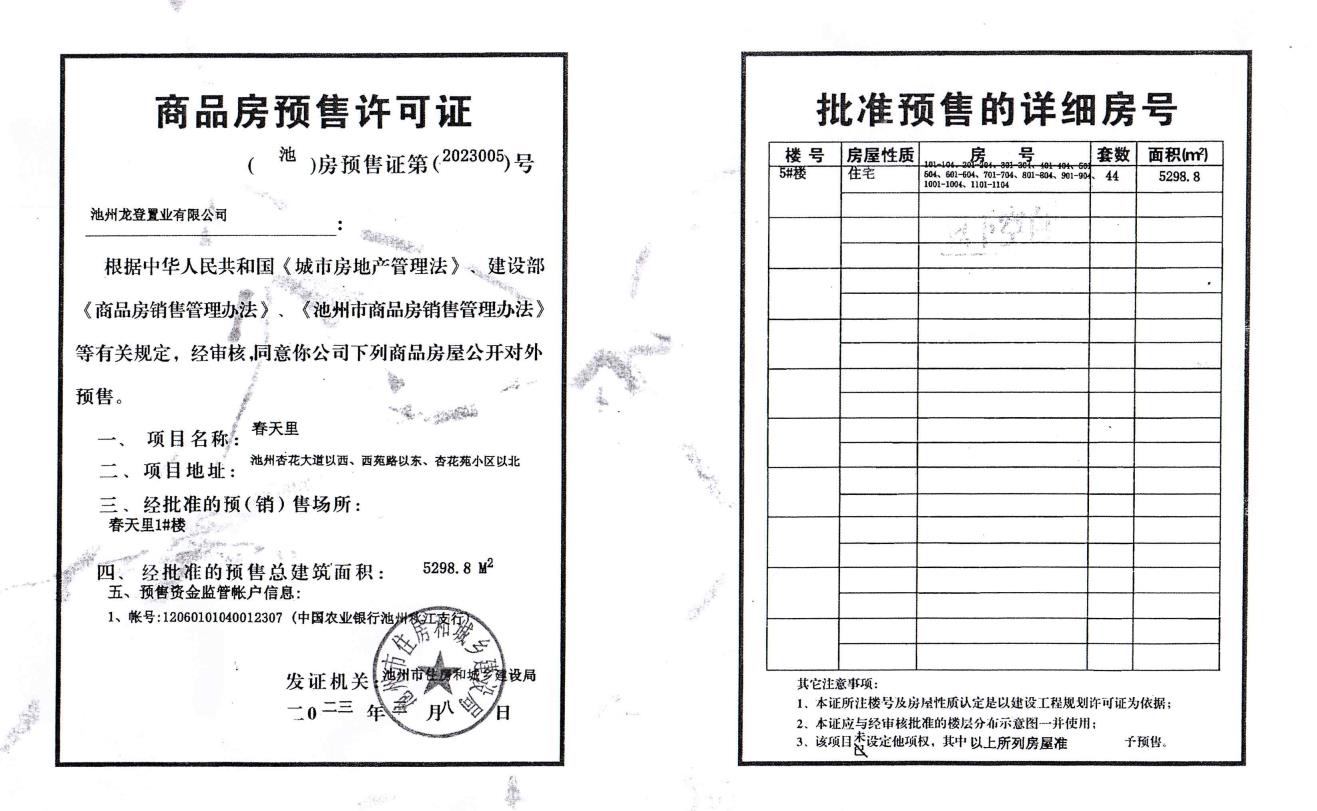 商品房预售许可证
(池)房预售证第(2023005)号
池州龙登置业有限公司:
根据中华人民共和国《城市房地产管理法》、建设部
《商品房销售管理办法》、《池州市商品房销售管理办法》
等有关规定，经审核，同意你公司下列商品房屋公开对外
预售。
一、项目名称：春天里
二、项目地址：池州杏花大道以西、西苑路以东、杏花苑小区以北
三、经批准的预(销)售场所：
春天里1#楼
四、经批准的预售总建筑面积： 5298.8 M²
五、预售资金监管帐户信息:
1、帐号:12060101040012307 (中国农业银行池州秋江支行)
发证机关:池州市住房和城乡建设局
二0二三 年 月八 日
池州市住房和城乡建设局
批准预售的详细房号
楼号 房屋性质 房号 套数 面积(m²)
5#楼 住宅 101-104、201-204、301-304、401-404、501 44 5298.8
504、601-604、701-704、801-804、901-904、
1001-1004、1101-1104
其它注意事项:
1、本证所注楼号及房屋性质认定是以建设工程规划许可证为依据;
2、本证应与经审核批准的楼层分布示意图一并使用;
3、该项目未设定他项权，其中以上所列房屋准 予预售。